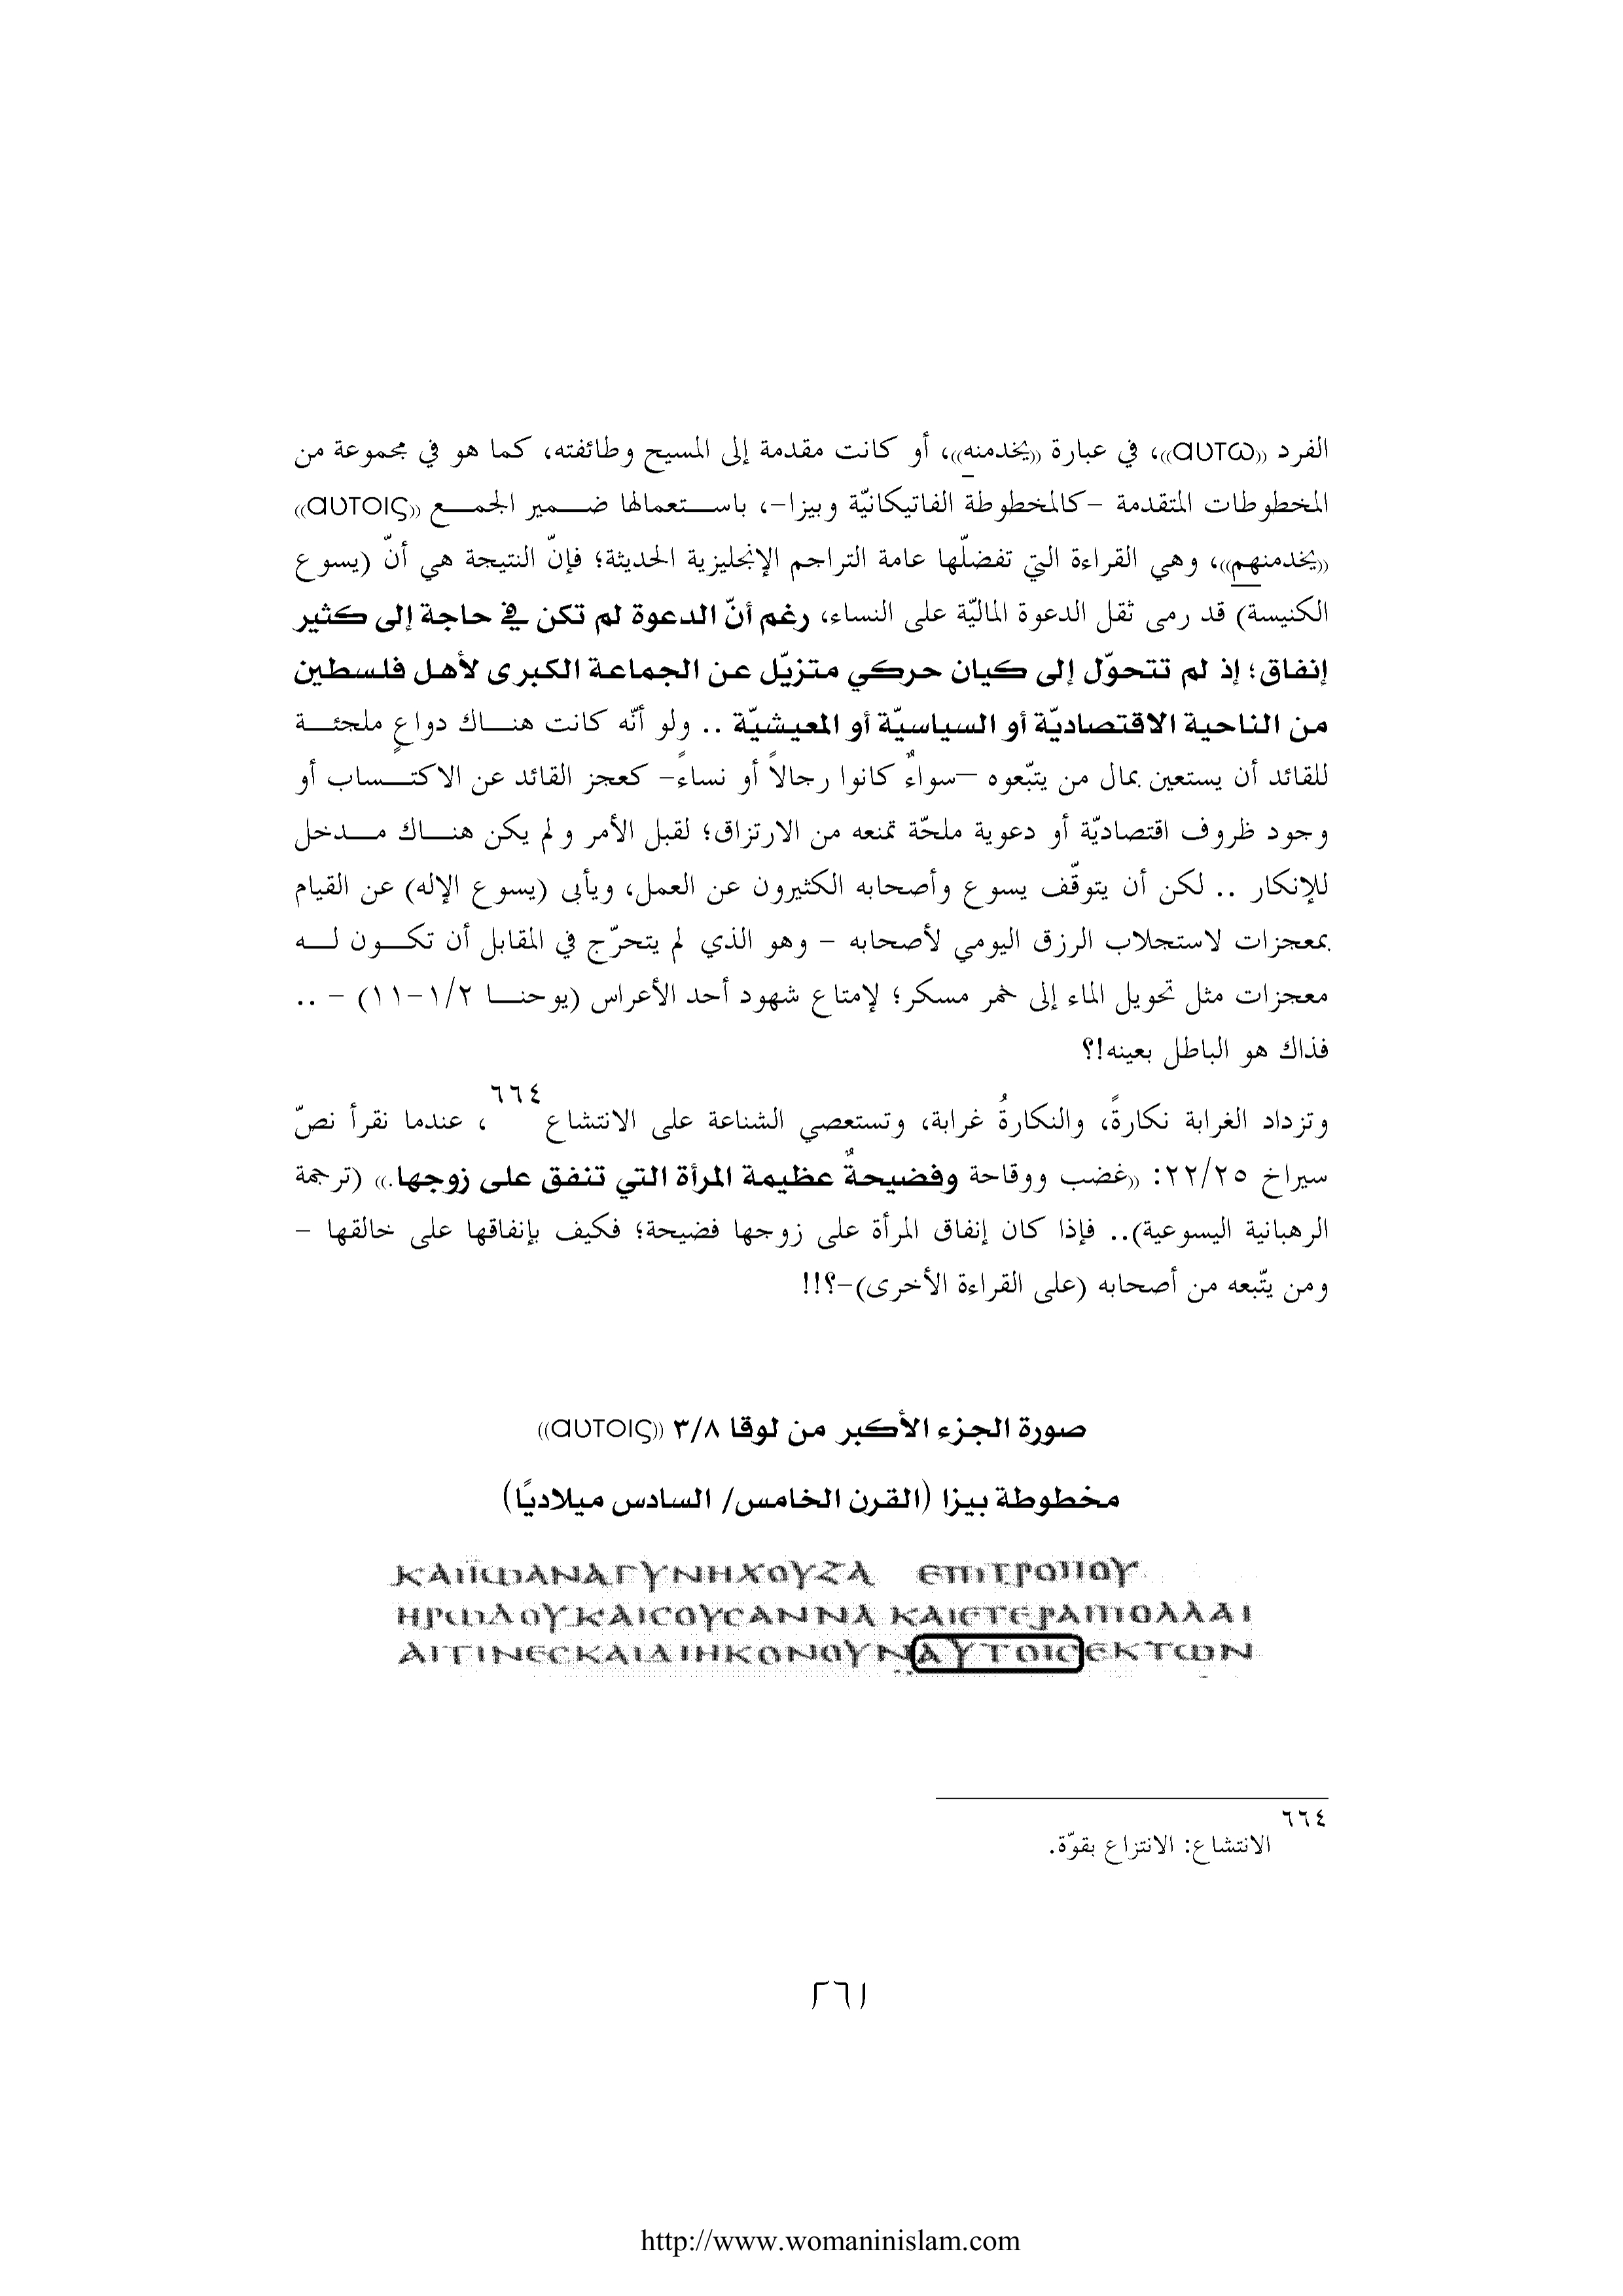 الفرد ((αυτω))، في عبارة ((يخدمنه))، أو كانت مقدمة إلى المسيح وطائفته، كما هو في مجموعة من
المخطوطات المتقدمة -كالمخطوطة الفاتيكانيّة وبيزا-، باستعمالها ضمير الجمع ((αυτοις))
((يخدمنهم))، وهي القراءة التي تفضلّها عامة التراجم الإنجليزية الحديثة؛ فإنّ النتيجة هي أنّ (يسوع
الكنيسة) قد رمى ثقل الدعوة الماليّة على النساء، رغم أنّ الدعوة لم تكن في حاجة إلى كثير
إنفاق؛ إذ لم تتحوّل إلى كيان حركي متزيّل عن الجماعة الكبرى لأهل فلسطين
من الناحية الاقتصاديّة أو السياسيّة أو المعيشيّة .. ولو أنّه كانت هناك دواعٍ ملجئة
للقائد أن يستعين بمال من يتبّعوه –سواءٌ كانوا رجالاً أو نساءً- كعجز القائد عن الاكتساب أو
وجود ظروف اقتصاديّة أو دعوية ملحّة تمنعه من الارتزاق؛ لقبل الأمر ولم يكن هناك مدخل
للإنكار .. لكن أن يتوقّف يسوع وأصحابه الكثيرون عن العمل، ويأبى (يسوع الإله) عن القيام
بمعجزات لاستجلاب الرزق اليومي لأصحابه - وهو الذي لم يتحرّج في المقابل أن تكون له
معجزات مثل تحويل الماء إلى خمر مسكر؛ لإمتاع شهود أحد الأعراس (يوحنا ١/٢-١١) - ..
فذاك هو الباطل بعينه!؟
وتزداد الغرابة نكارةً، والنكارةُ غرابة، وتستعصي الشناعة على الانتشاع٦٦٤، عندما نقرأ نصّ
سيراخ ٢٢/٢٥: ((غضب ووقاحة وفضيحةٌ عظيمة المرأة التي تنفق على زوجها.)) (ترجمة
الرهبانية اليسوعية).. فإذا كان إنفاق المرأة على زوجها فضيحة؛ فكيف بإنفاقها على خالقها -
ومن يتّبعه من أصحابه (على القراءة الأخرى)-؟!!
صورة الجزء الأكبر من لوقا ٣/٨ ((αυτοις))
مخطوطة بيزا (القرن الخامس/ السادس ميلاديًا)
ΚΑΙΪΩΑΝΑΓΥΝΗΧΟΥΖΑ ΕΠΙΤΡΟΠΟΥ
ΗΡΩΔΟΥΚΑΙCΟΥCΑΝΝΑ ΚΑΙΕΤΕΡΑΙΠΟΛΛΑΙ
ΑΙΤΙΝΕCΚΑΙΔΙΗΚΟΝΟΥΝΑΥΤΟΙCΕΚΤΩΝ
٦٦٤ الانتشاع: الانتزاع بقوّة.
٢٦١
http://www.womaninislam.com